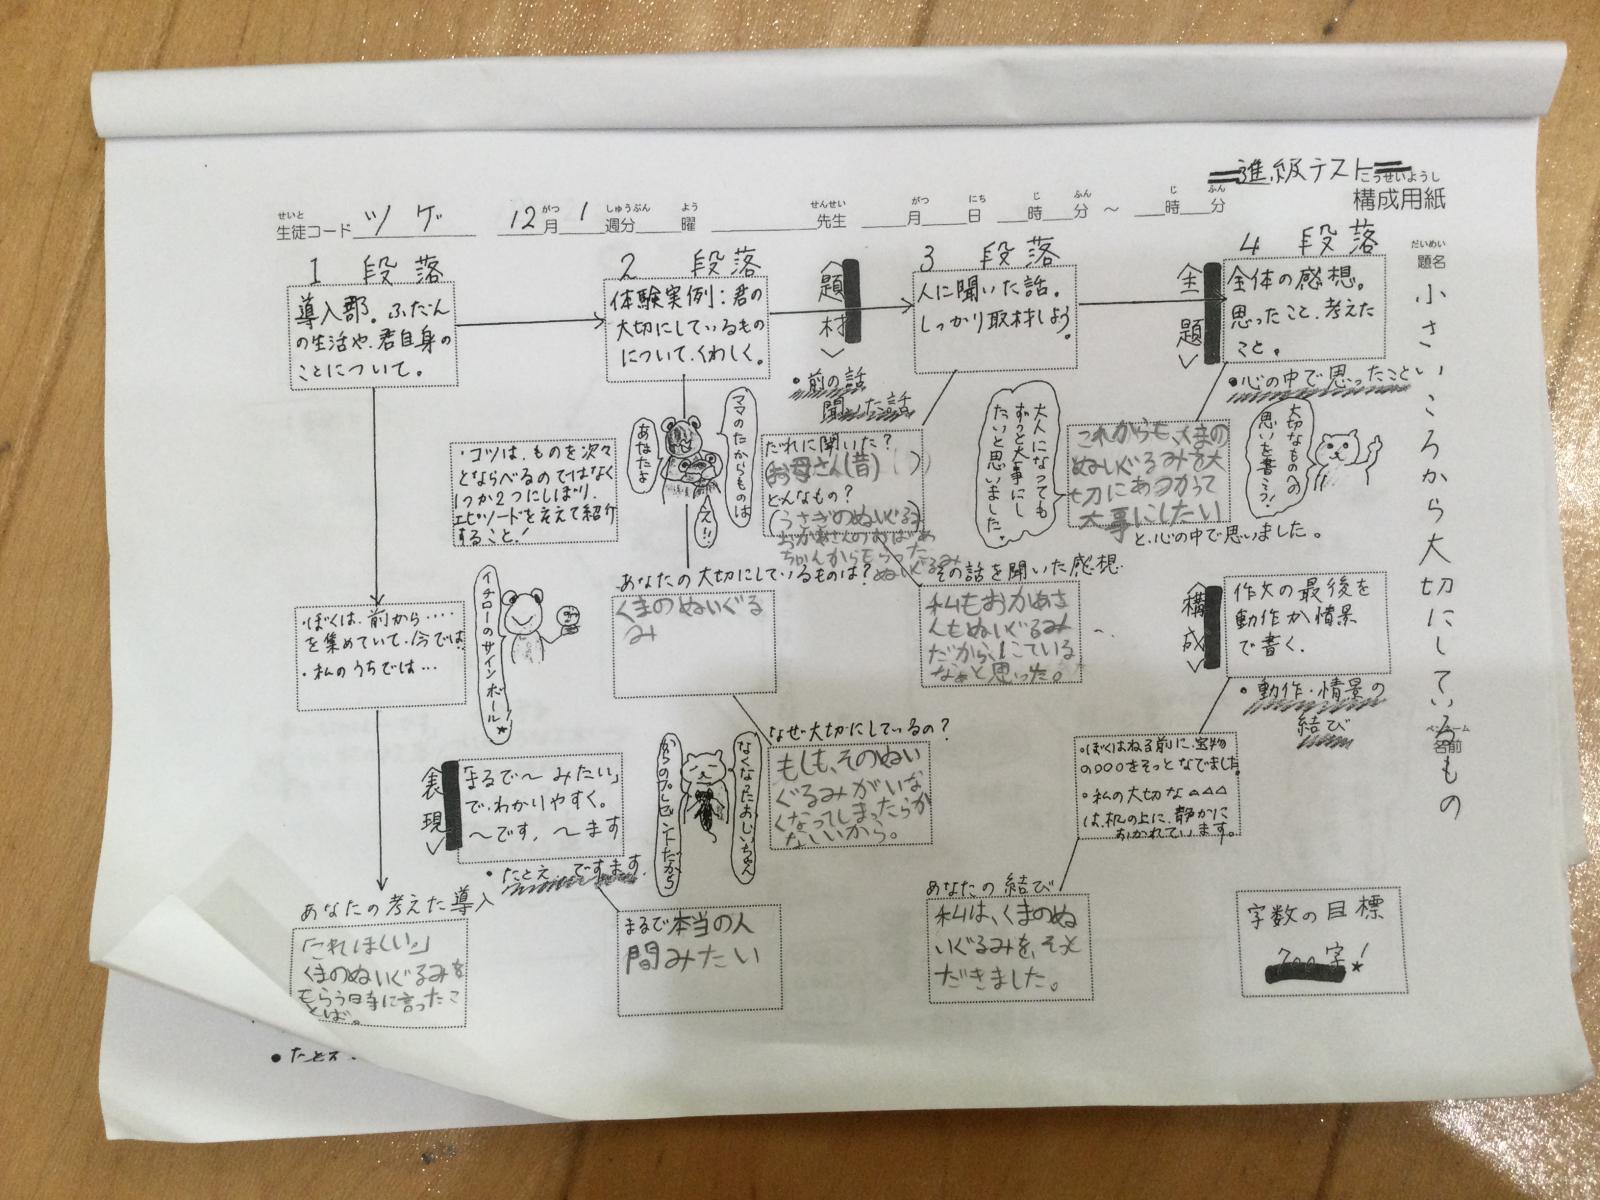 進級テスト
構成用紙
こうせいようし
生徒コード ツゲ 12月1週分 曜 先生 月 日 時 分 ～ 時 分
せいと がつ しゅうぶん よう せんせい がつ にち じ ふん じ ふん
だいめい
題名
小さいころから大切にしているもの
ペンネーム
名前
1 段落
導入部。ふだん
の生活や、君自身の
ことについて。
・ぼくは、前から‥‥
を集めていて、今では
・私のうちでは…
イチローのサインボール！
あなたの考えた導入
「これほしい。」
くまのぬいぐるみを
もらう時に言ったこ
とば。
・たとえ
2 段落
体験実例：君の
大切にしているもの
について、くわしく。
・コツは、ものを次々
とならべるのではなく
1つか2つにしぼり、
エピソードをそえて紹介
すること！
ママのたからものは
あなたよ
え!!
あなたの大切にしているものは？
くまのぬいぐる
み
なぜ大切にしているの？
もしも、そのぬい
ぐるみがいな
くなってしまったらか
なしいから。
なくなったおじいちゃん
からのプレゼントだから
〈表現〉
「まるで～みたい」
で、わかりやすく。
～です。～ます
・たとえ ですます
まるで本当の人
間みたい
〈題材〉
・前の話
聞いた話
3 段落
人に聞いた話。
しっかり取材しよう。
だれに聞いた？
(お母さん(昔)
どんなもの？
(うさぎのぬいぐるみ)
おかあさんのおばあ
ちゃんからもらった
ぬいぐるみ
その話を聞いた感想
私もおかあさ
んもぬいぐるみ
だから、にている
なぁと思った。
〈主題〉
4 段落
全体の感想。
思ったこと、考えた
こと。
・心の中で思ったこと
大切なものへの
思いを書こう！
大人になっても
ずっと大事にし
たいと思いました。
これからも、くまの
ぬいぐるみを大
切にあつかって
大事にしたい
と、心の中で思いました。
〈構成〉
作文の最後を
動作か情景
で書く。
・動作・情景の
結び
・ぼくはねる前に、宝物
の○○○をそっとなでました。
・私の大切な△△△
は、机の上に、静かに
おかれています。
あなたの結び
私は、くまのぬ
いぐるみを、そっと
だきました。
字数の目標
700字！